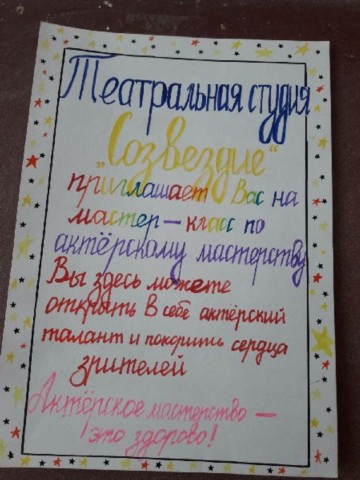 Театральная студия
„Созвездие“
приглашает Вас на
мастер – класс по
актёрскому мастерству
Вы здесь можете
открыть в себе актёрский
талант и покорить сердца
зрителей
Актёрское мастерство –
это здорово!